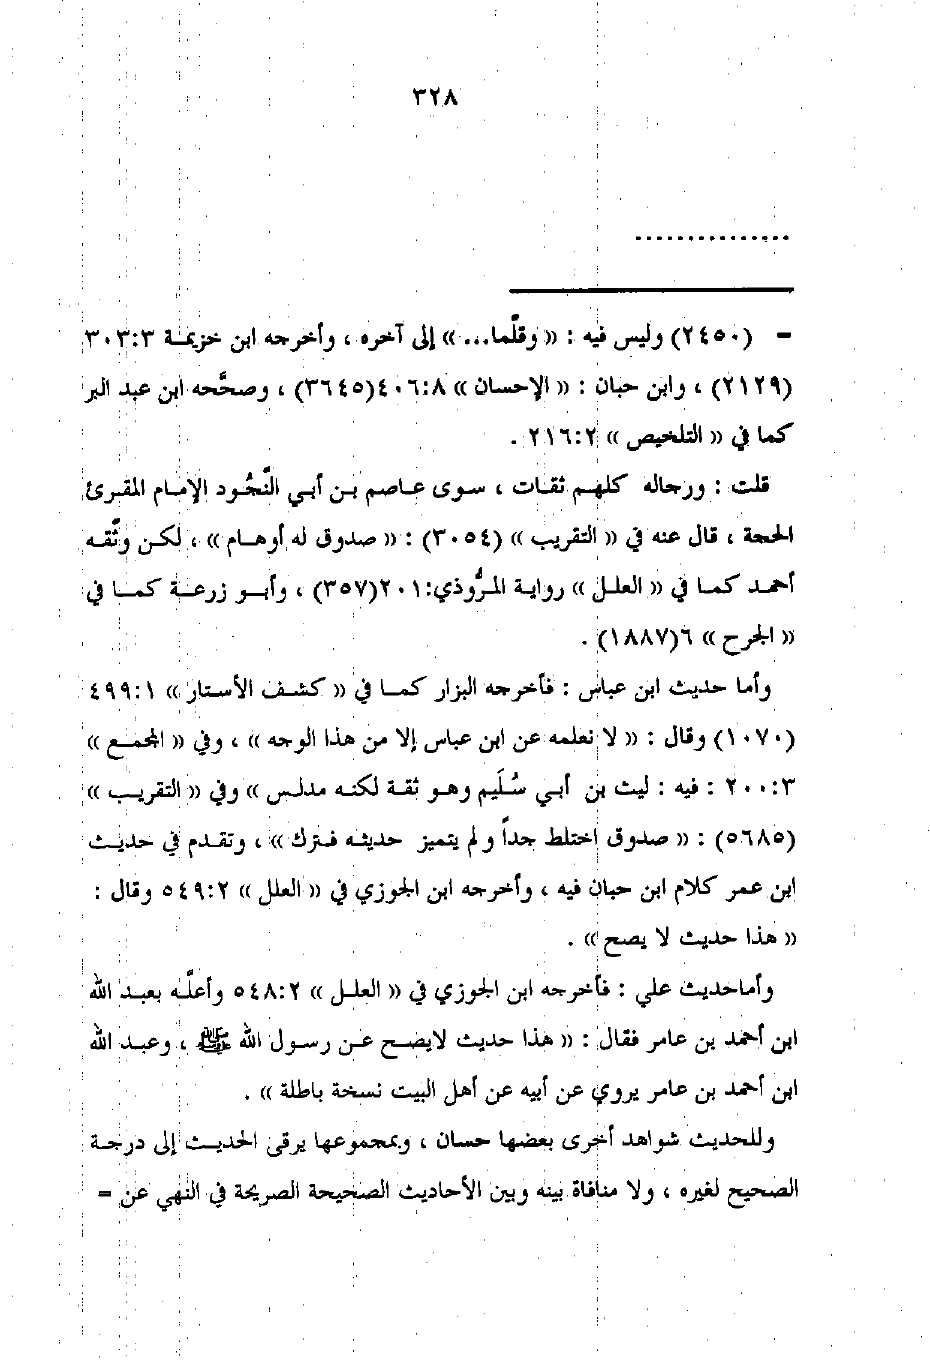 ٣٢٨
...............
= (٢٤٥٠) وليس فيه : « وقلَّما... » إلى آخره ، وأخرجه ابن خزيمة ٣٠٣:٣
(٢١٢٩) ، وابن حبان : « الإحسان » ٤٠٦:٨(٣٦٤٥) ، وصحَّحه ابن عبد البر
كما في « التلخيص » ٢١٦:٢ .
قلت : ورجاله كلهم ثقات ، سوى عاصم بن أبي النَّجُود الإمام المقرئ
الحجة ، قال عنه في « التقريب » (٣٠٥٤) : « صدوق له أوهام » ، لكن وثَّقه
أحمد كما في « العلل » رواية المرُّوذي:٢٠١(٣٥٧) ، وأبو زرعة كما في
« الجرح » ٦(١٨٨٧) .
وأما حديث ابن عباس : فأخرجه البزار كما في « كشف الأستار » ٤٩٩:١
(١٠٧٠) وقال : « لا نعلمه عن ابن عباس إلا من هذا الوجه » ، وفي « المجمع »
٢٠٠:٣ : فيه : ليث بن أبي سُلَيم وهو ثقة لكنه مدلس » وفي « التقريب »
(٥٦٨٥) : « صدوق اختلط جداً و لم يتميز حديثه فترك » ، وتقدم في حديث
ابن عمر كلام ابن حبان فيه ، وأخرجه ابن الجوزي في « العلل » ٥٤٩:٢ وقال :
« هذا حديث لا يصح » .
وأماحديث علي : فأخرجه ابن الجوزي في « العلل » ٥٤٨:٢ وأعلَّه بعبد الله
ابن أحمد بن عامر فقال : « هذا حديث لايصح عن رسول الله ﷺ ، وعبد الله
ابن أحمد بن عامر يروي عن أبيه عن أهل البيت نسخة باطلة » .
وللحديث شواهد أخرى بعضها حسان ، وبمجموعها يرقى الحديث إلى درجة
الصحيح لغيره ، ولا منافاة بينه وبين الأحاديث الصحيحة الصريحة في النهي عن =